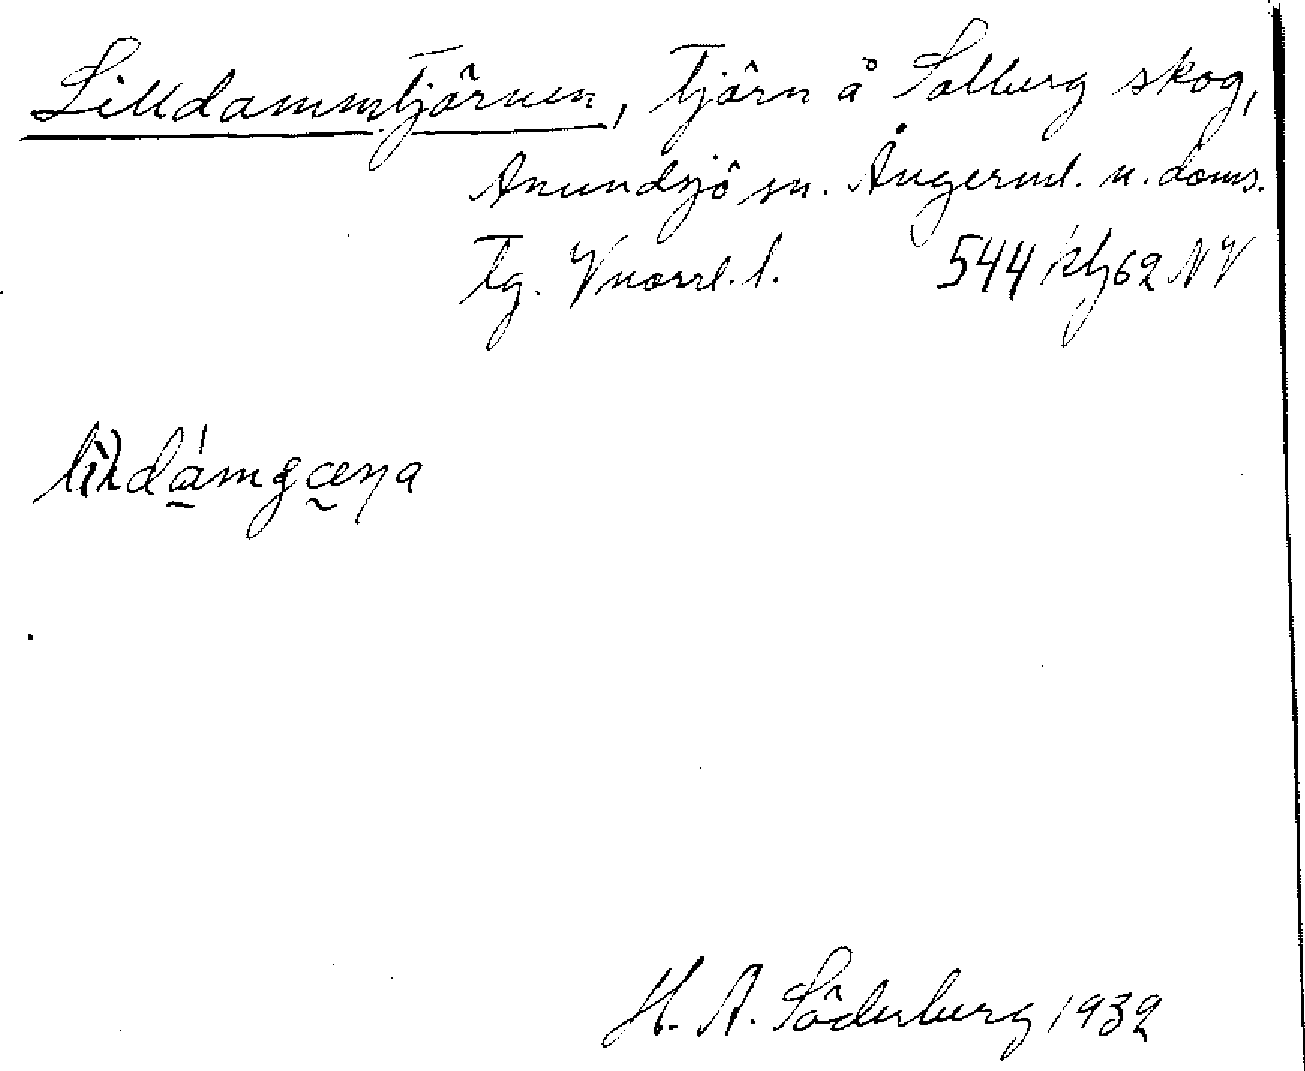 Lilldammtjärnen, Tjärn å Solberg skog,
Anundsjö sn. Ångerml. n. doms.
Tg. Vnorrl. l. 544 62 NV
H. A. Söderberg 1932